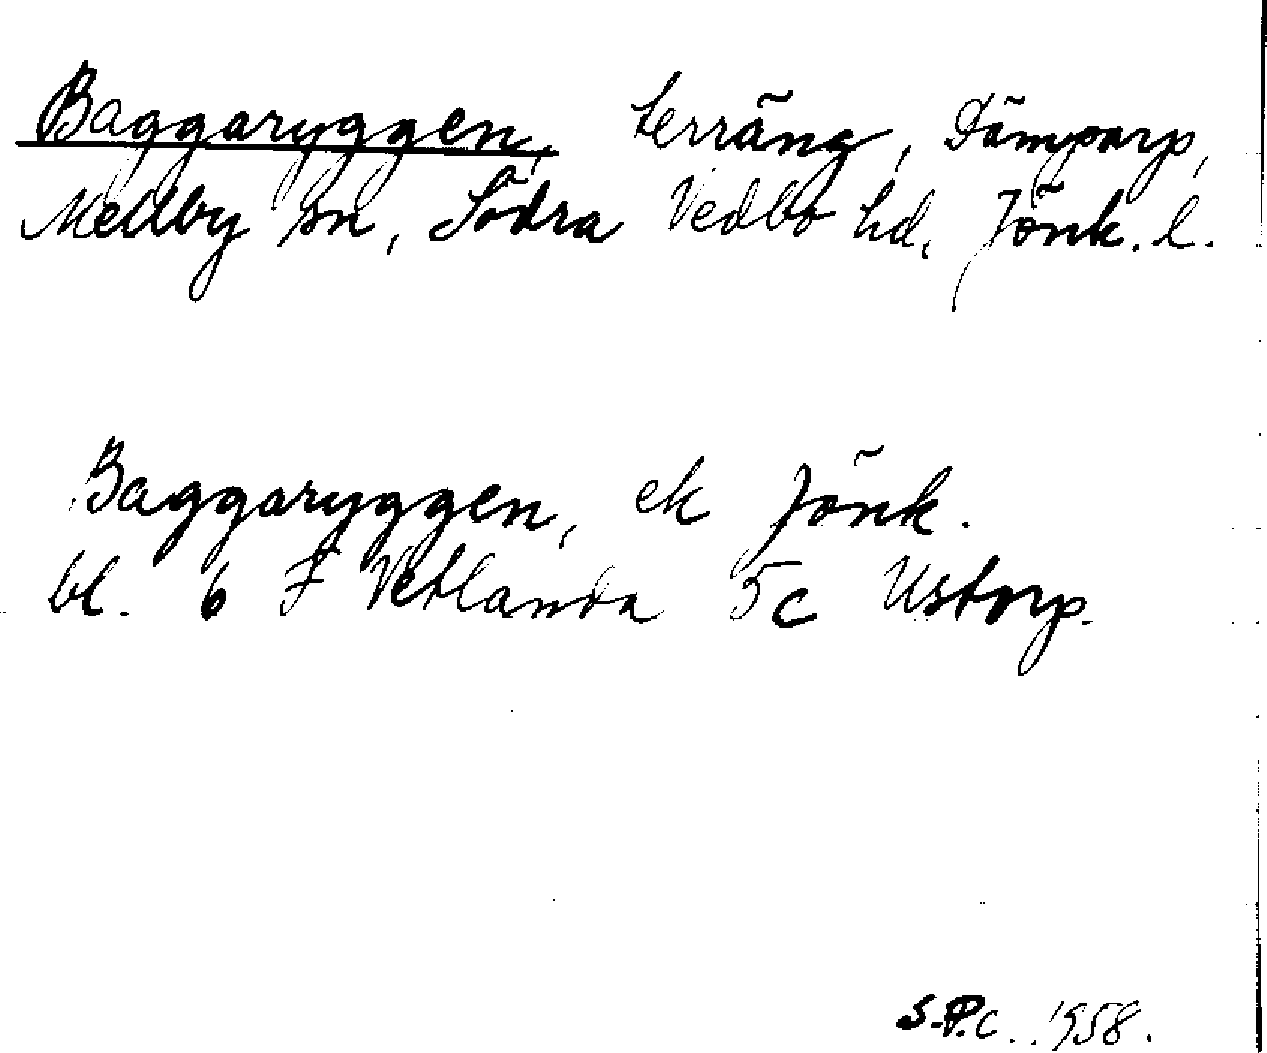 Baggaryggen, terräng, Dämparp,
Mellby sn, Södra Vedbo hd, Jönk. l.
Baggaryggen, ek Jönk.
bl. 6 F Vetlanda 5c Ustorp.
S.P.C. 1958.